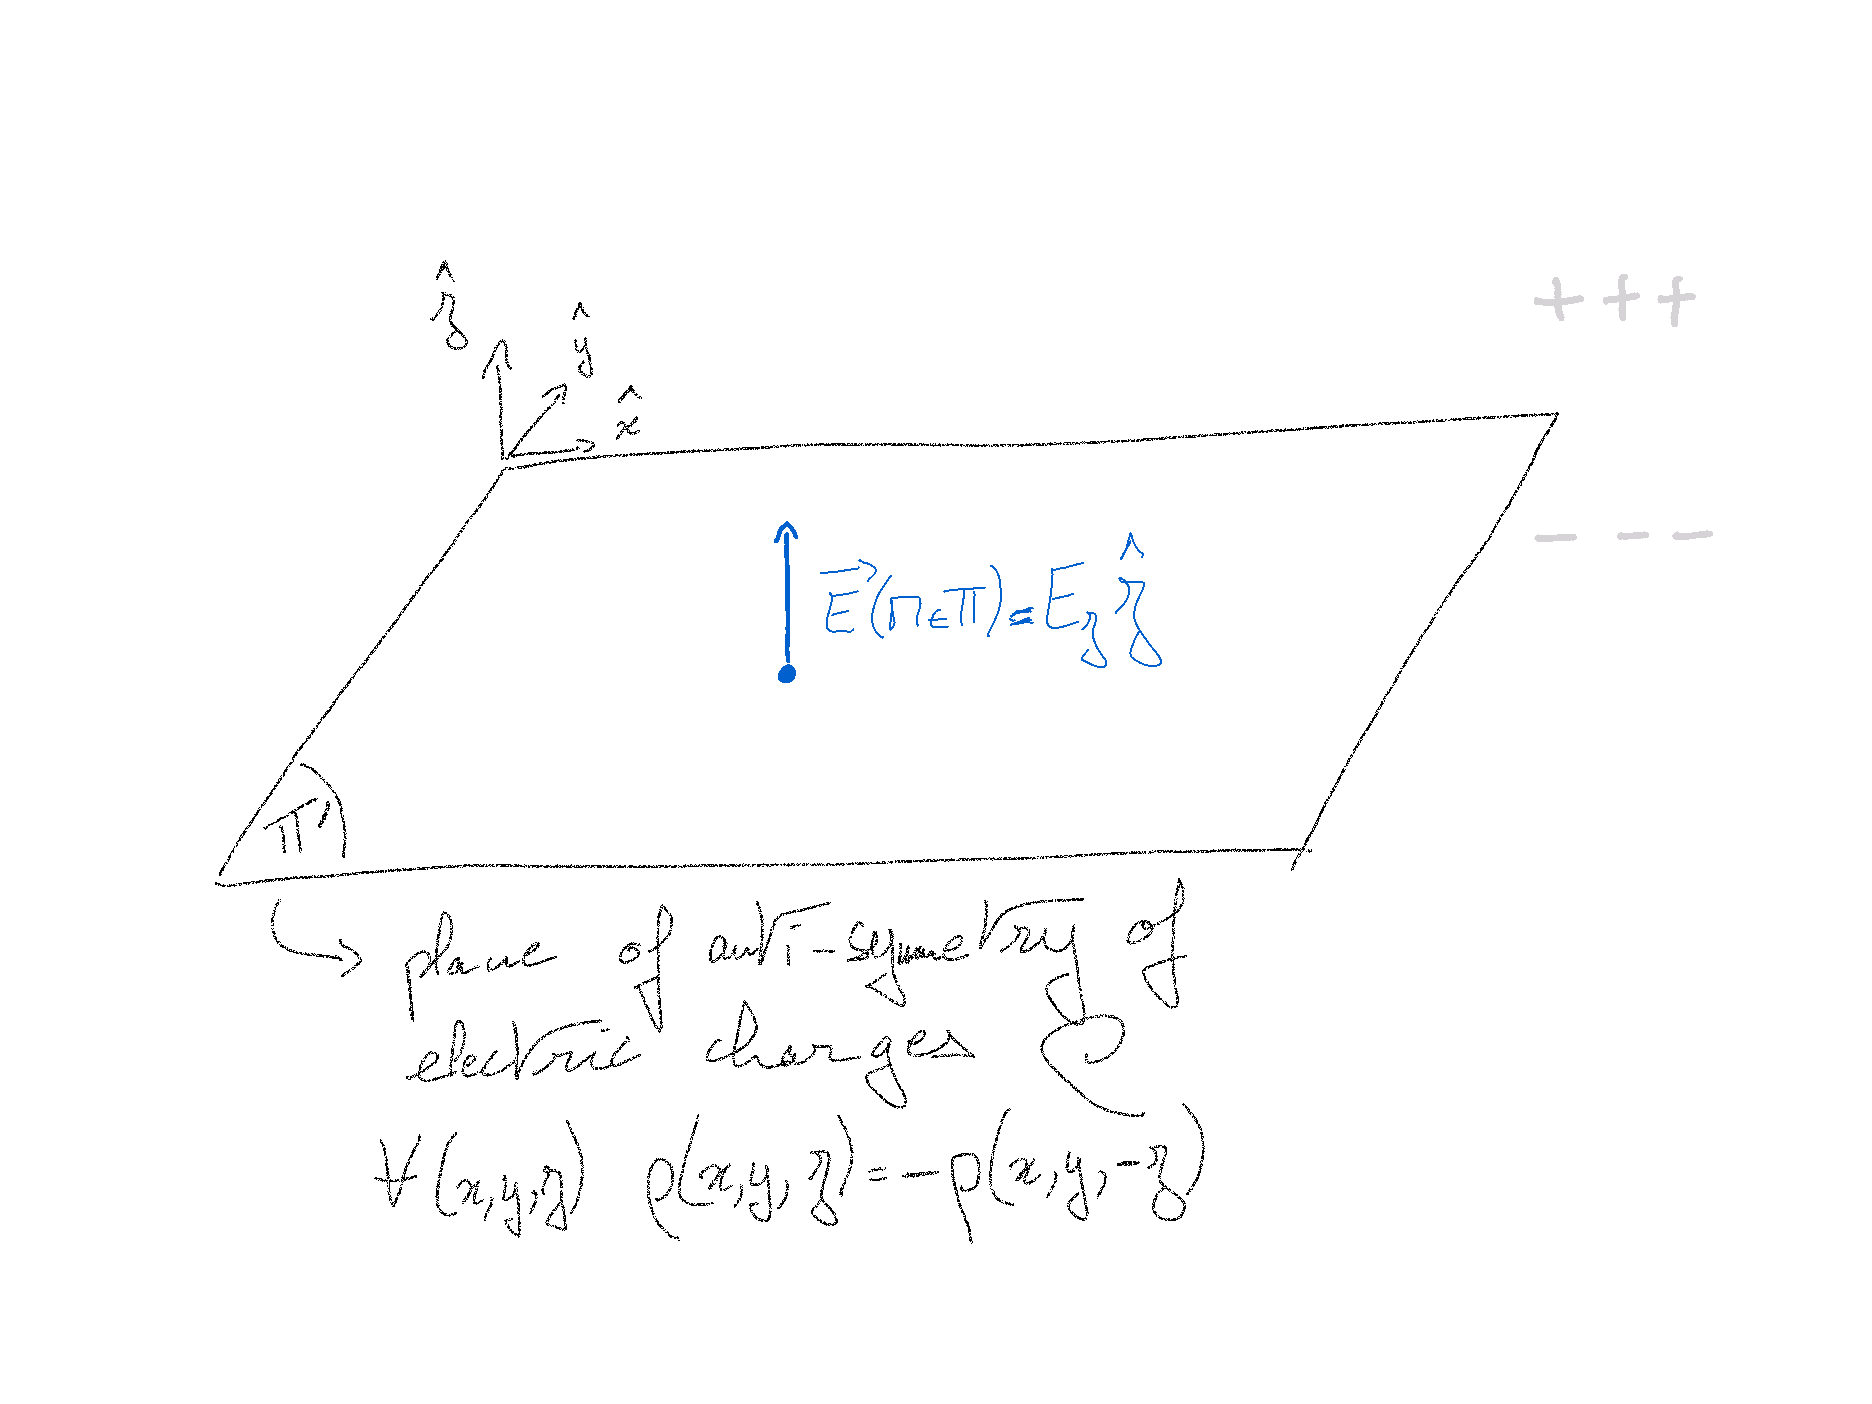 +++
ẑ
ŷ
x̂
- - -
E⃗(M∈Π) = E_z ẑ
Π'
↳ plane of anti-symmetry of
electric charges
∀(x,y,z) ρ(x,y,z) = -ρ(x,y,-z)